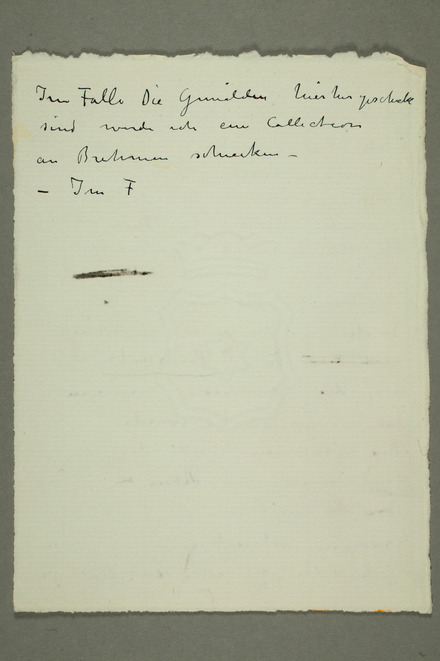 Im Falle Die Gmälden hierher geschickt
sind werde ich eine Collection
an Brehmen schicken –
– Im F